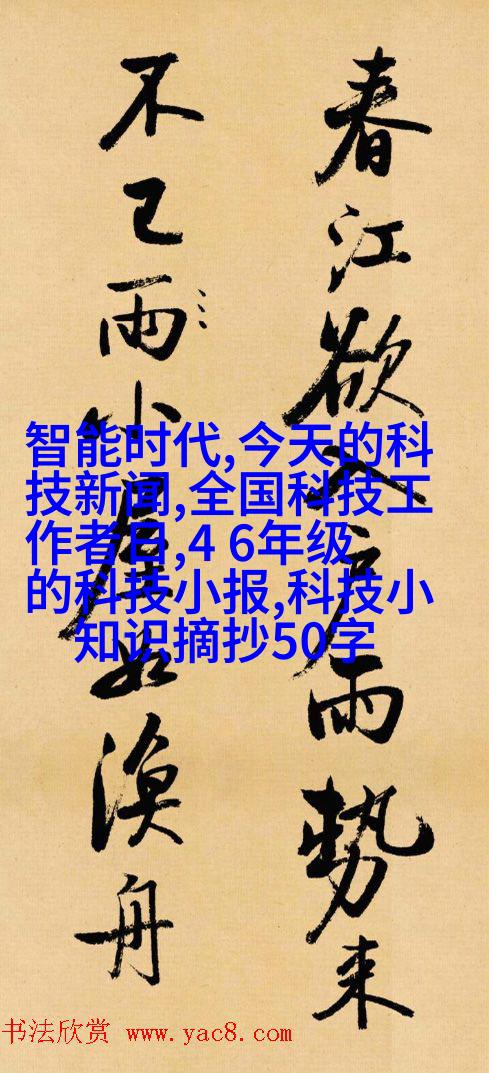 春江欲入户雨勢来
不已雨小屋如漁舟
智能时代,今天的科
技新闻,全国科技工
作者日,4 6年级
的科技小报,科技小
知识摘抄50字
书法欣赏 www.yac8.com